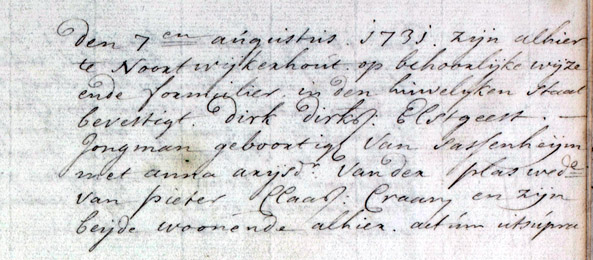 den 7 en augustus 1731 zijn alhier
te Noortwijkerhout op behoorlijke wijze
ende formulier in den huwelijken staat
bevestigt. Dirk Dirksz: Elstgeest. —
Jongman geboortig van Sassenheijm
met anna arijsd:r van der plas wed:e
van pieter Claasz: Craan, en zijn
beijde woonende alhier. actum utsúpra